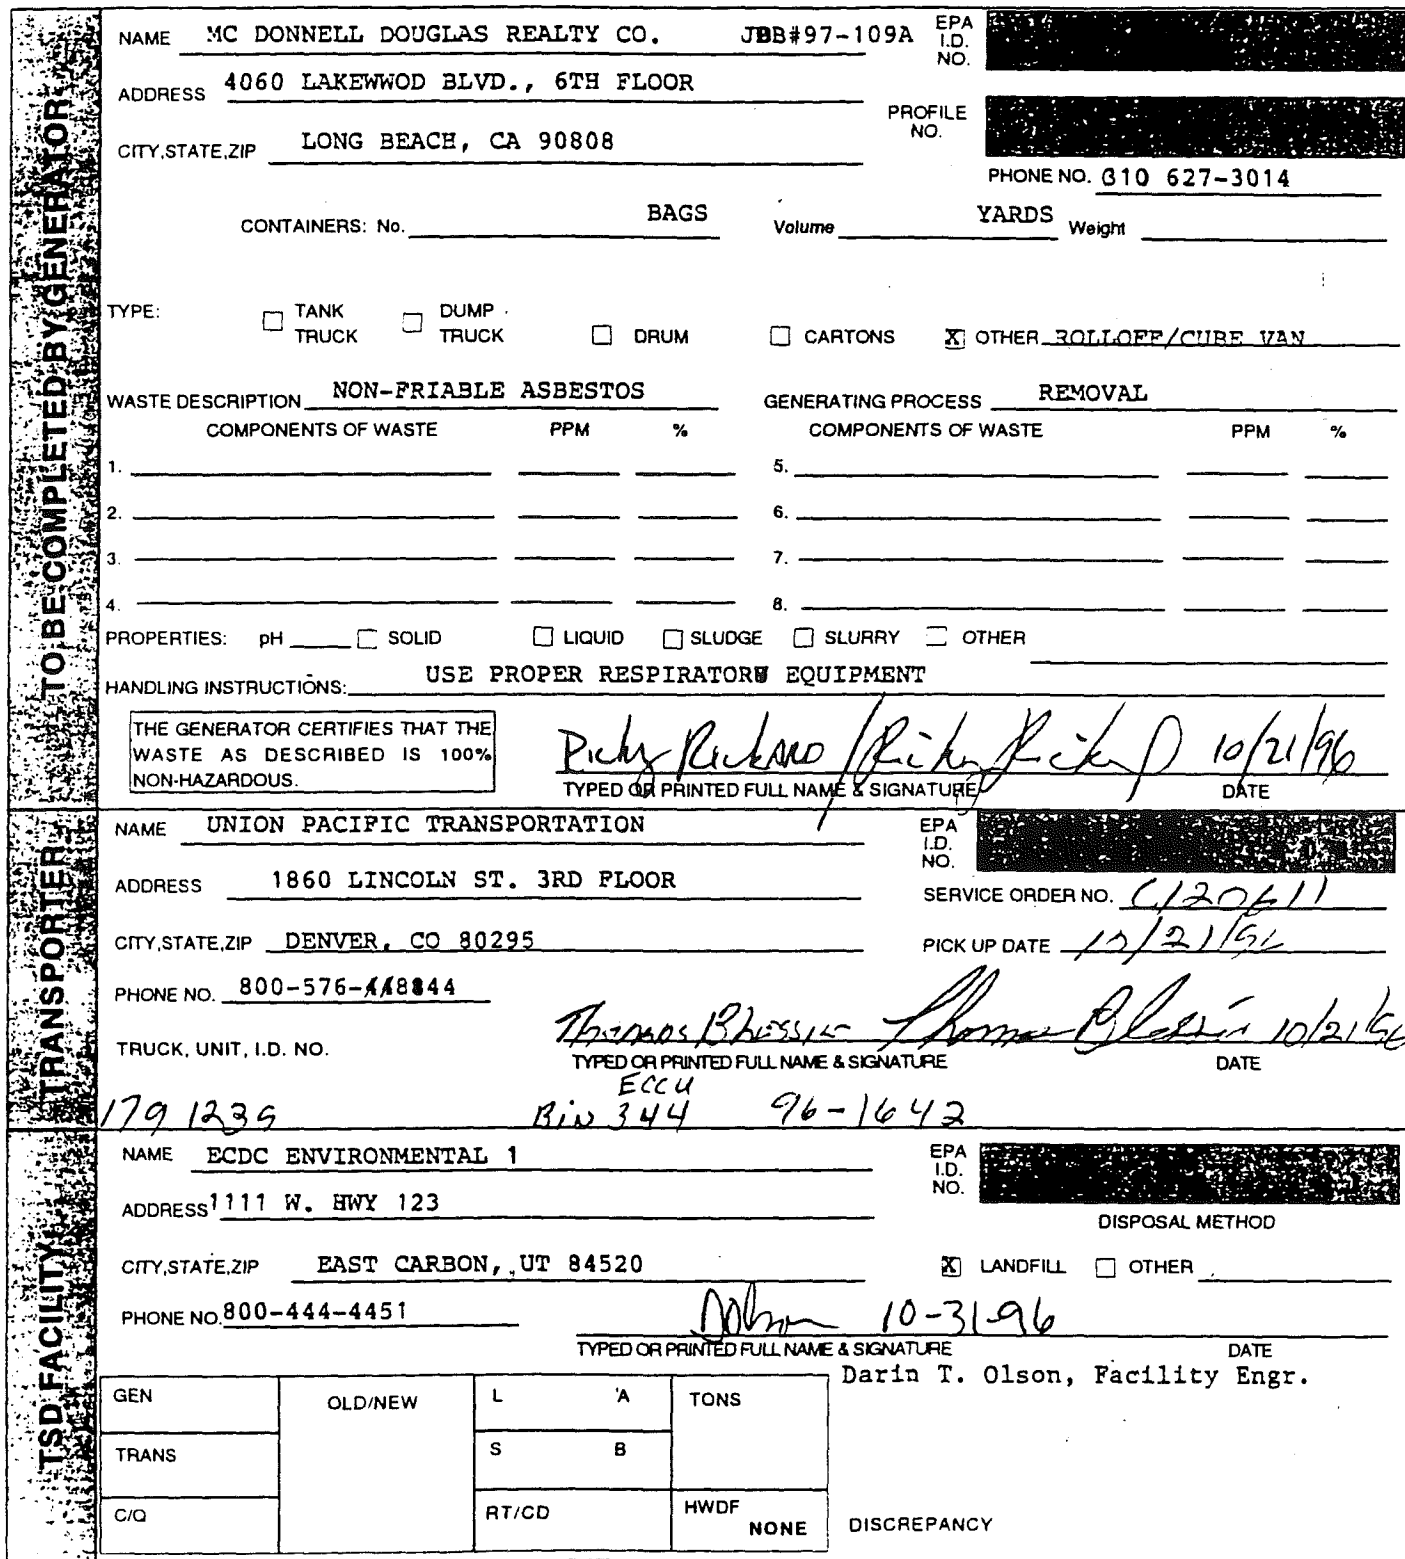 TO BE COMPLETED BY GENERATOR
NAME MC DONNELL DOUGLAS REALTY CO. JBB#97-109A EPA I.D. NO.
ADDRESS 4060 LAKEWWOD BLVD., 6TH FLOOR
PROFILE NO.
CITY,STATE,ZIP LONG BEACH, CA 90808
PHONE NO. 310 627-3014
CONTAINERS: No. BAGS Volume YARDS Weight
TYPE: TANK TRUCK DUMP TRUCK DRUM CARTONS X OTHER ROLLOFF/CUBE VAN
WASTE DESCRIPTION NON-FRIABLE ASBESTOS GENERATING PROCESS REMOVAL
COMPONENTS OF WASTE PPM % COMPONENTS OF WASTE PPM %
1. 5.
2. 6.
3. 7.
4. 8.
PROPERTIES: pH SOLID LIQUID SLUDGE SLURRY OTHER
HANDLING INSTRUCTIONS: USE PROPER RESPIRATORY EQUIPMENT
THE GENERATOR CERTIFIES THAT THE
WASTE AS DESCRIBED IS 100%
NON-HAZARDOUS.
10/21/96
TYPED OR PRINTED FULL NAME & SIGNATURE DATE
TRANSPORTER
NAME UNION PACIFIC TRANSPORTATION EPA I.D. NO.
ADDRESS 1860 LINCOLN ST. 3RD FLOOR
SERVICE ORDER NO. C120611
CITY,STATE,ZIP DENVER, CO 80295 PICK UP DATE 10/21/96
PHONE NO. 800-576-
Thomas 10/21/96
TRUCK, UNIT, I.D. NO.
TYPED OR PRINTED FULL NAME & SIGNATURE DATE
ECCU
179 1239 Bin 344 96-1642
TSD FACILITY
NAME ECDC ENVIRONMENTAL 1 EPA I.D. NO.
ADDRESS 1111 W. HWY 123
DISPOSAL METHOD
CITY,STATE,ZIP EAST CARBON, UT 84520 X LANDFILL OTHER
PHONE NO. 800-444-4451 10-31-96
TYPED OR PRINTED FULL NAME & SIGNATURE DATE
Darin T. Olson, Facility Engr.
GEN OLD/NEW L A TONS
TRANS S B
C/Q RT/CD HWDF NONE DISCREPANCY